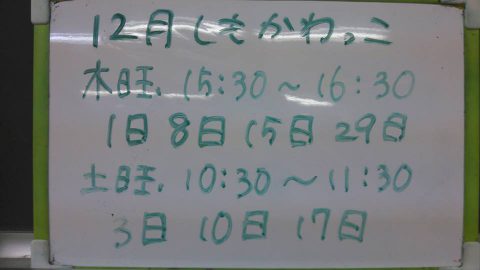 12月しきかわっこ
木旺、15:30～16:30
1日 8日 15日 29日
土旺、10:30～11:30
3日 10日 17日